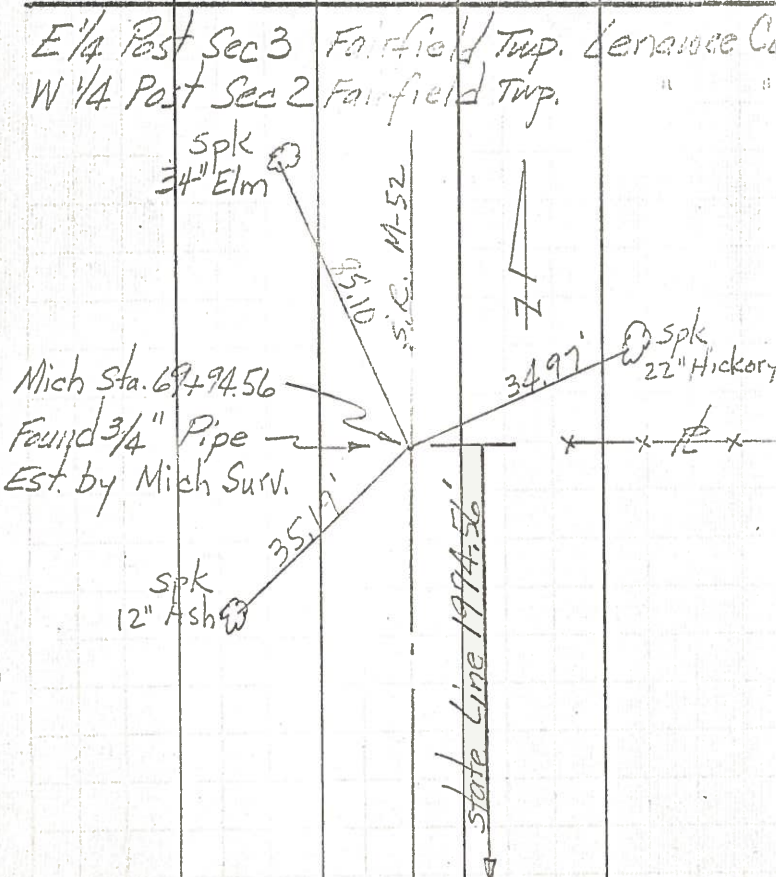 E 1/4 Post Sec 3 Fairfield Twp. Lenawee Co
W 1/4 Post Sec 2 Fairfield Twp. " "
spk
34" Elm
S.R. M-52
N
spk
22" Hickory
34.97'
Mich Sta. 69+94.56
Found 3/4" Pipe
Est. by Mich Surv.
35.19'
spk
12" Ash
State Line 1994.56'